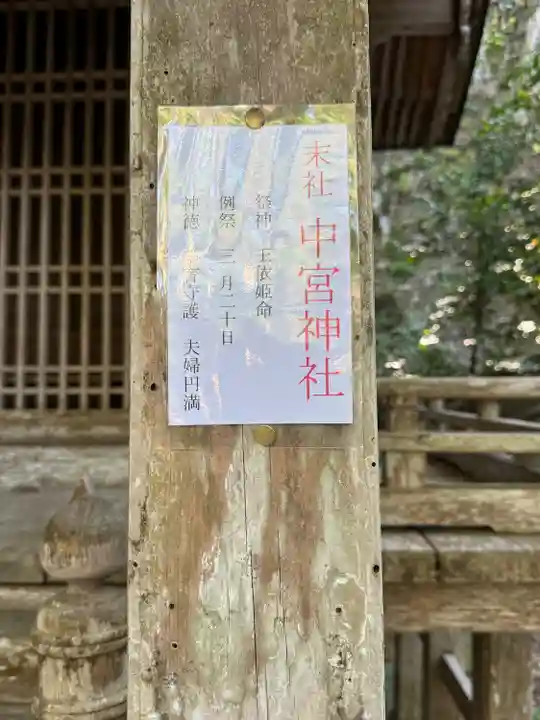 末社 中宮神社
祭神 玉依姫命
例祭 三月二十日
神徳 守護 夫婦円満